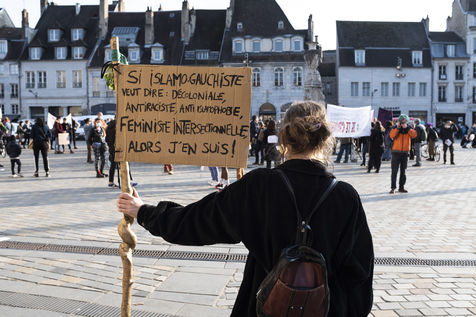 SI ISLAMO-GAUCHISTE
VEUT DIRE: DÉCOLONIALE,
ANTIRACISTE, ANTI ISLAMOPHOBE,
FÉMINISTE INTERSECTIONNELLE
ALORS J'EN SUIS!